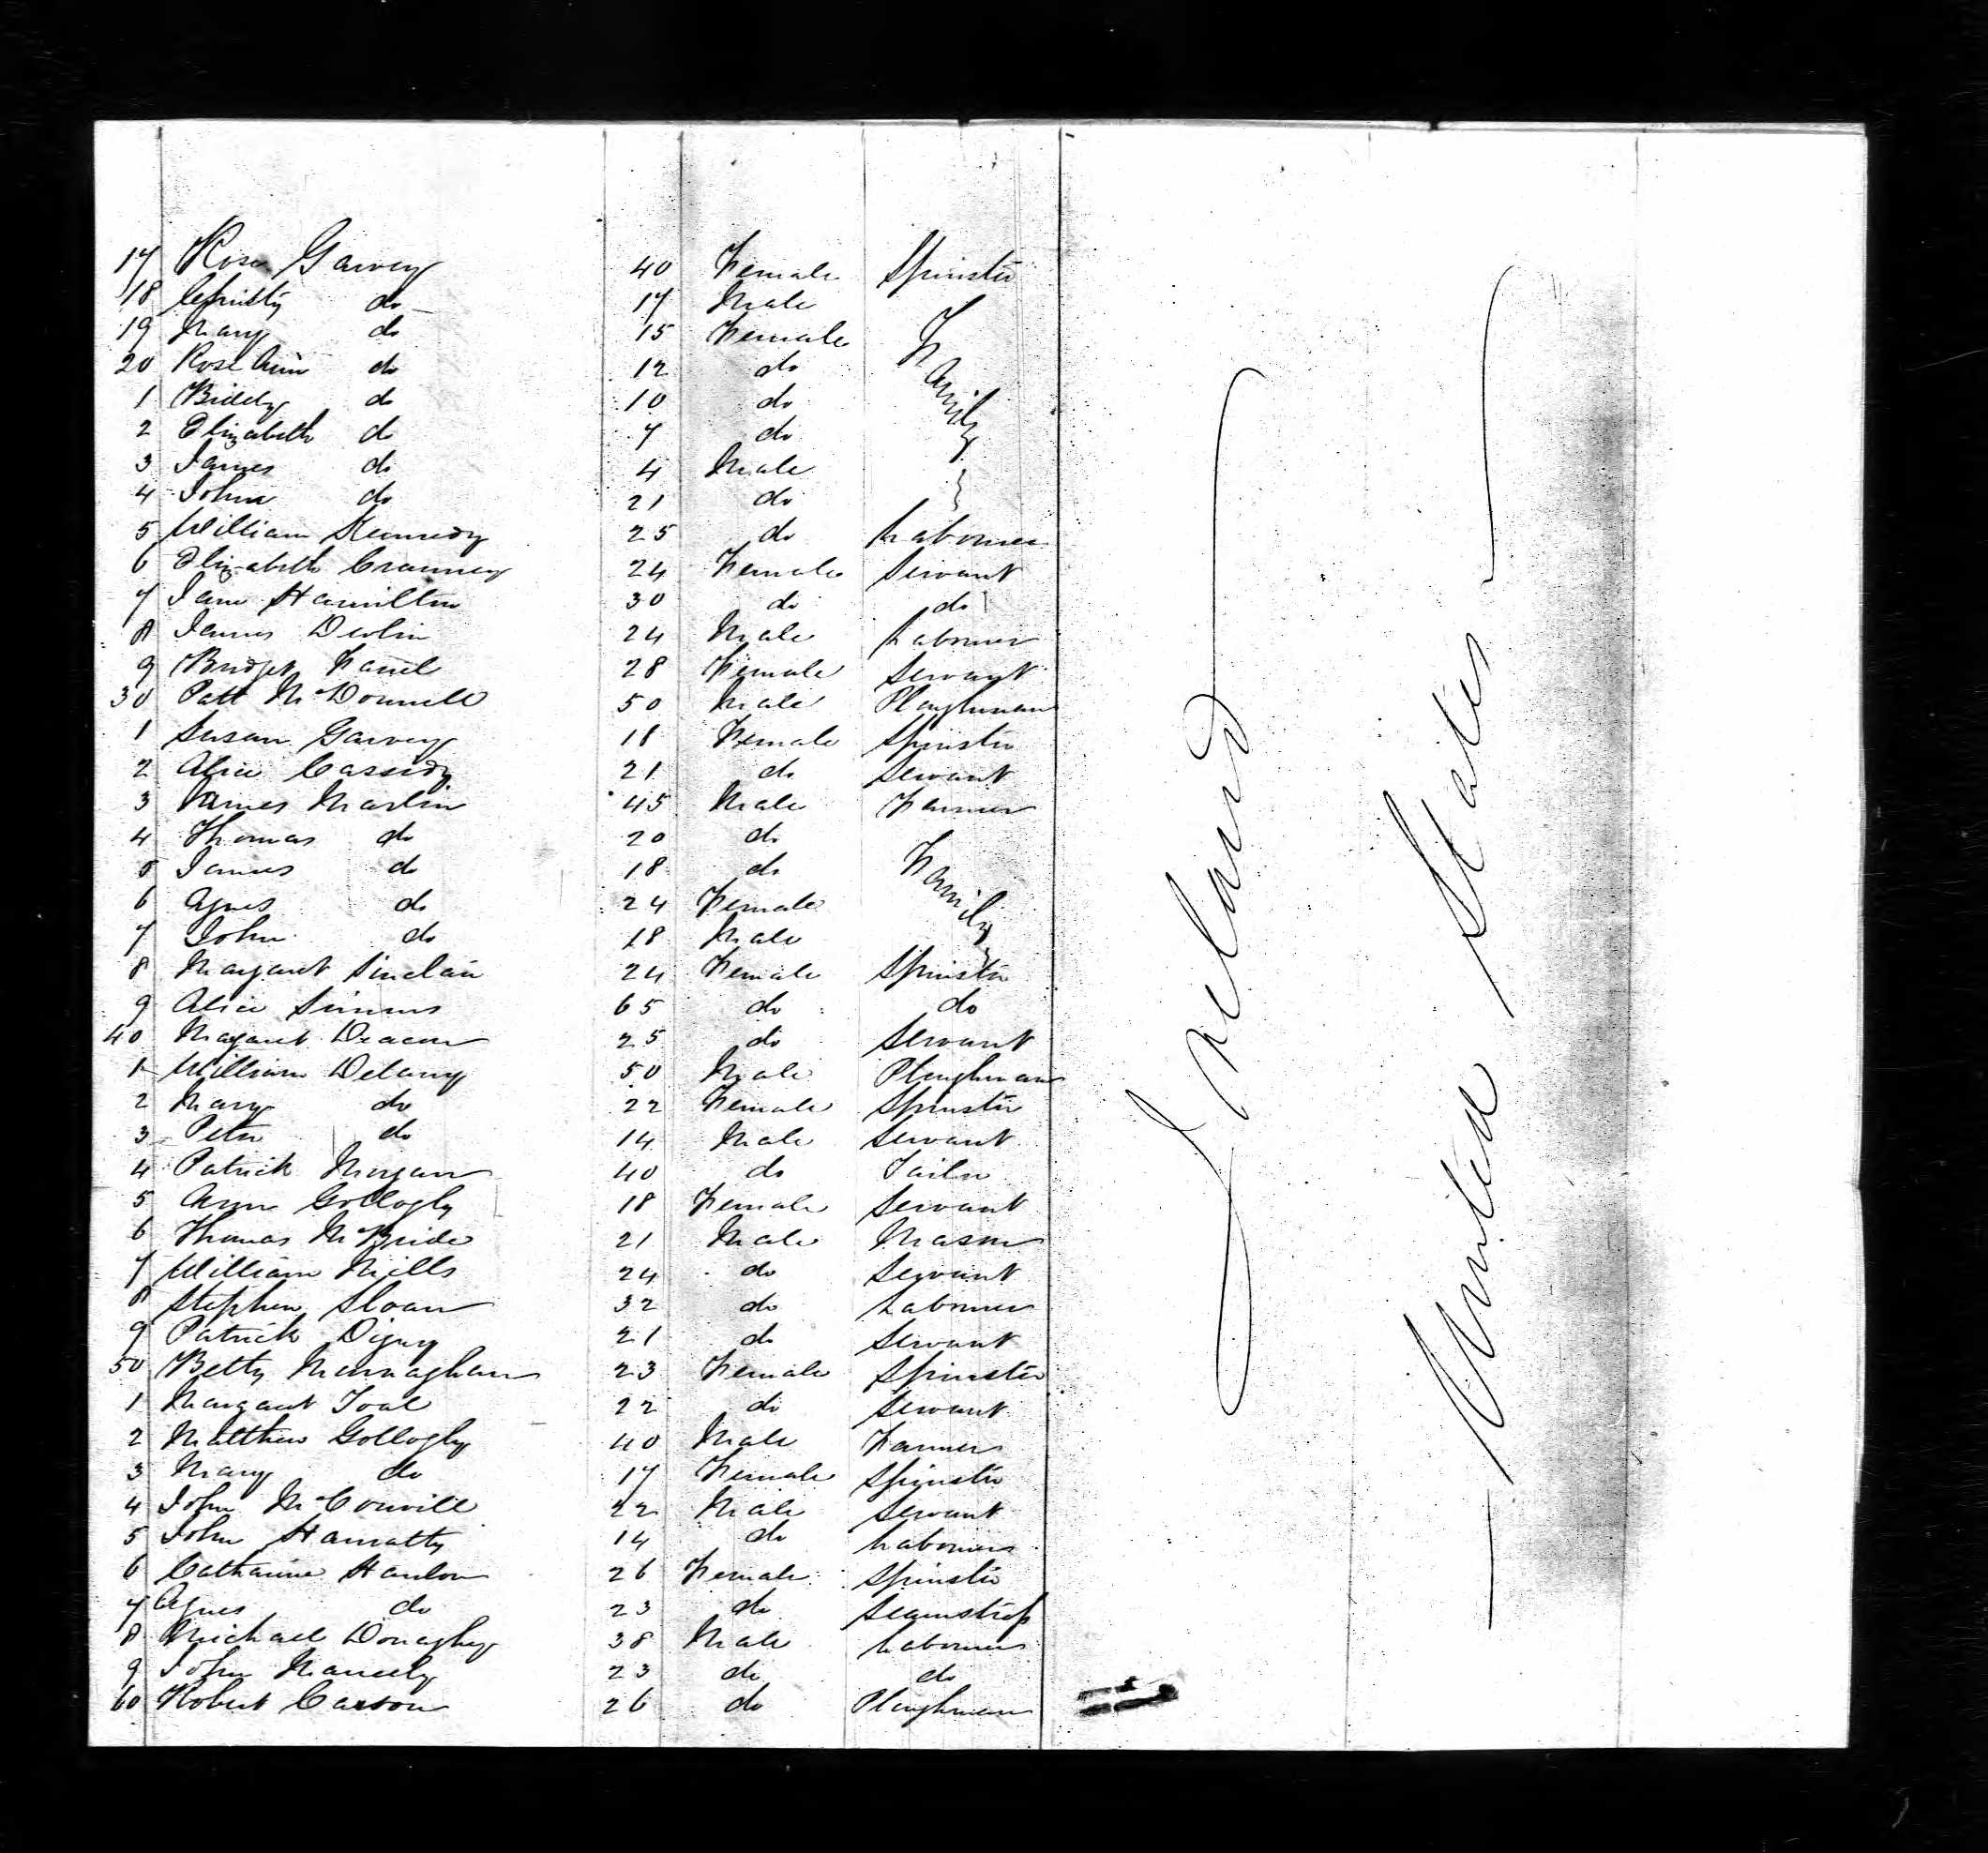 17 Rose Garvey 40 Female Spinster
18 Christy do 17 Male
19 Mary do 15 Female Family
20 Rose Ann do 12 do
1 Biddy do 10 do
2 Elizabeth do 7 do
3 James do 4 Male
4 John do 21 do
5 William Kennedy 25 do Labourer
6 Elizabeth Cranney 24 Female Servant
7 Jane Hamilton 30 do do
8 James Devlin 24 Male Labourer
9 Bridget 28 Female Servant
30 Patt McDonnell 50 Male Ploughman
1 Susan Garvey 18 Female Spinster
2 Alice Cassidy 21 do Servant
3 James Martin 45 Male Farmer
4 Thomas do 20 do
5 James do 18 do Family
6 Agnes do 24 Female
7 John do 18 Male
8 Margaret Sinclair 24 Female Spinster
9 Alice Simms 65 do do
40 Margaret Deacon 25 do Servant
1 William Delany 50 Male Ploughman
2 Mary do 22 Female Spinster
3 Peter do 14 Male Servant
4 Patrick Morgan 40 do Tailor
5 Ann Gollogly 18 Female Servant
6 Thomas McBride 21 Male Mason
7 William Mills 24 do Servant
8 Stephen Sloan 32 do Labourer
9 Patrick Digny 21 do Servant
50 Betty Marnaghan 23 Female Spinster
1 Margaret Toal 22 do Servant
2 Matthew Gollogly 40 Male Farmer
3 Mary do 17 Female Spinster
4 John McConvill 22 Male Servant
5 John Hanratty 14 do Labourer
6 Catharine Hanlon 26 Female Spinster
7 Agnes do 23 do Seamstress
8 Michael Donaghy 38 Male Labourer
9 John 23 do do
60 Robert Carson 26 do Ploughman
Ireland
United States